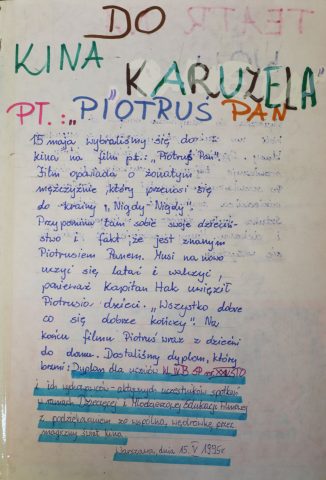 DO
KINA "KARUZELA"
PT.: "PIOTRUŚ PAN
15 maja wybraliśmy się do
kina na film pt. „Piotruś Pan".
Film opowiada o żonatym
mężczyźnie który przenosi się
do krainy „Nigdy-Nigdy".
Przypomina tam sobie swoje dzieciń-
stwo i fakt że jest znanym
Piotrusiem Panem. Musi na nowo
uczyć się latać i walczyć,
ponieważ Kapitan Hak uwięził
Piotrusia dzieci. „Wszystko dobre
co się dobrze kończy". Na
końcu filmu Piotruś wraz z dziećmi
do domu. Dostaliśmy dyplom, który
brzmi: Dyplom dla uczniów KL IV B SP
i ich wychowawców - aktywnych uczestników spotkań
w ramach Dziecięcej i Młodzieżowej Edukacji Filmowej
z podziękowaniem za wspólną wędrówkę przez
magiczny świat kina
Warszawa, dnia 15. V 1995r